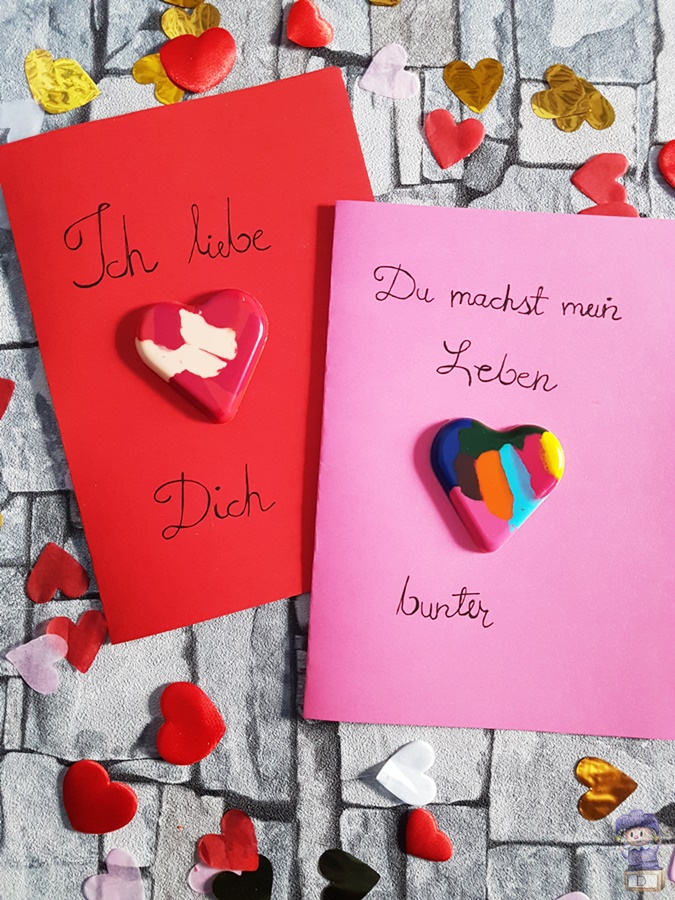 Ich liebe
Dich
Du machst mein
Leben
bunter